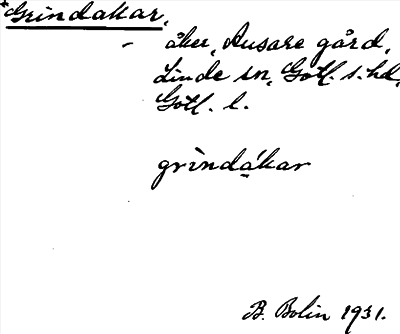 *Grindakar,
- åker, Ausare gård,
Linde sn, Gotl. s. hd,
Gotl. l.
grìndá̱kar
B. Bolin 1931.